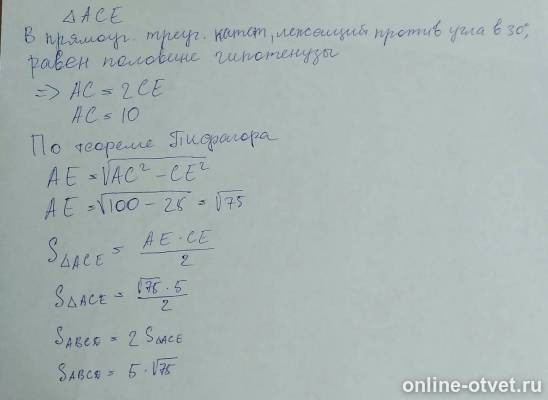 △ACE
В прямоуг. треуг. катет, лежащий против угла в 30°,
равен половине гипотенузы
=> AC = 2CE
AC = 10
По теореме Пифагора
AE = √(AC² − CE²)
AE = √(100 − 25) = √75
S△ACE = (AE · CE)/2
S△ACE = (√75 · 5)/2
SABCD = 2S△ACE
SABCD = 5 · √75
online-otvet.ru